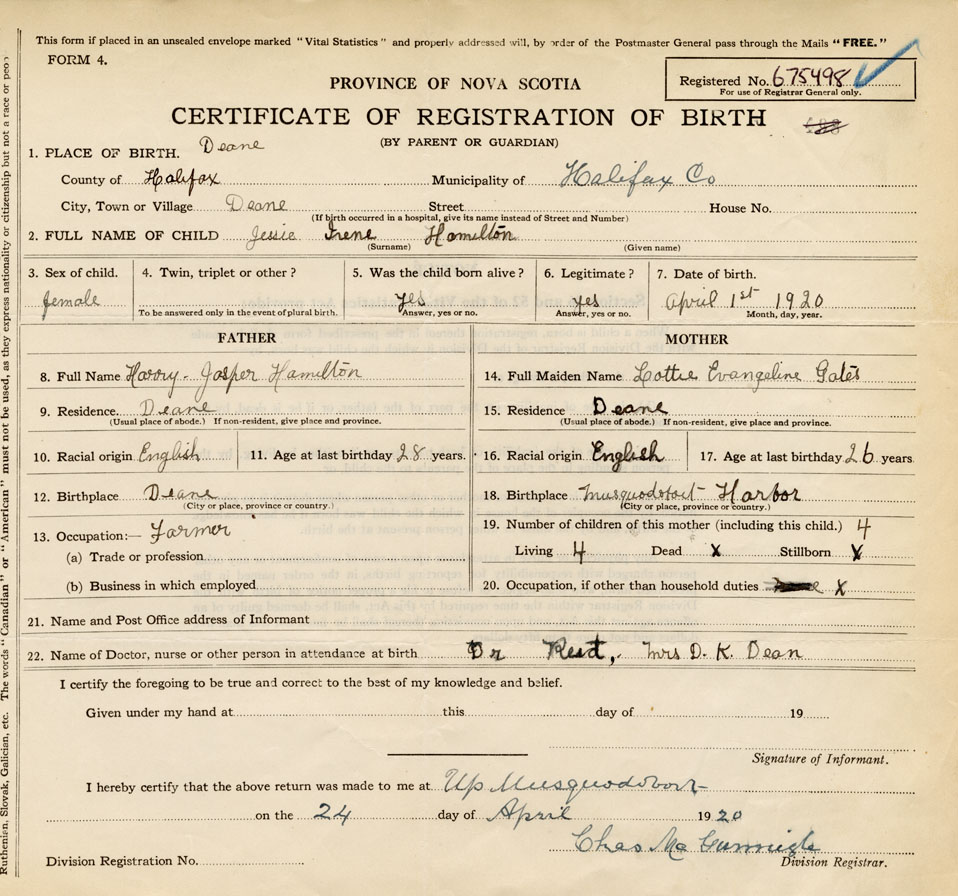 This form if placed in an unsealed envelope marked "Vital Statistics" and properly addressed will, by order of the Postmaster General pass through the Mails "FREE."
FORM 4.
Registered No. 675498
For use of Registrar General only.
PROVINCE OF NOVA SCOTIA
CERTIFICATE OF REGISTRATION OF BIRTH
(BY PARENT OR GUARDIAN)
1. PLACE OF BIRTH. Deane
County of Halifax Municipality of Halifax Co
City, Town or Village Deane Street House No.
(If birth occurred in a hospital, give its name instead of Street and Number)
2. FULL NAME OF CHILD Jessie Irene Hamilton
(Surname) (Given name)
3. Sex of child. 4. Twin, triplet or other? 5. Was the child born alive? 6. Legitimate? 7. Date of birth.
female yes yes April 1st 1920
To be answered only in the event of plural birth. Answer, yes or no. Answer, yes or no. Month, day, year.
FATHER
8. Full Name Harry Jasper Hamilton
9. Residence. Deane
(Usual place of abode.) If non-resident, give place and province.
10. Racial origin English 11. Age at last birthday 28 years.
12. Birthplace Deane
(City or place, province or country.)
13. Occupation:— Farmer
(a) Trade or profession
(b) Business in which employed
MOTHER
14. Full Maiden Name Lottie Evangeline Gates
15. Residence Deane
(Usual place of abode.) If non-resident, give place and province.
16. Racial origin English 17. Age at last birthday 26 years
18. Birthplace Musquodoboit Harbor
(City or place, province or country.)
19. Number of children of this mother (including this child.) 4
Living 4 Dead X Stillborn X
20. Occupation, if other than household duties X
21. Name and Post Office address of Informant
22. Name of Doctor, nurse or other person in attendance at birth Dr Reid, Mrs D. K. Dean
I certify the foregoing to be true and correct to the best of my knowledge and belief.
Given under my hand at this day of 19
Signature of Informant.
I hereby certify that the above return was made to me at Up Musquodoboit
on the 24 day of April 1920
Chas Mc
Division Registration No. Division Registrar.
Ruthenian, Slovak, Galician, etc. The words "Canadian" or "American" must not be used, as they express nationality or citizenship but not a race or